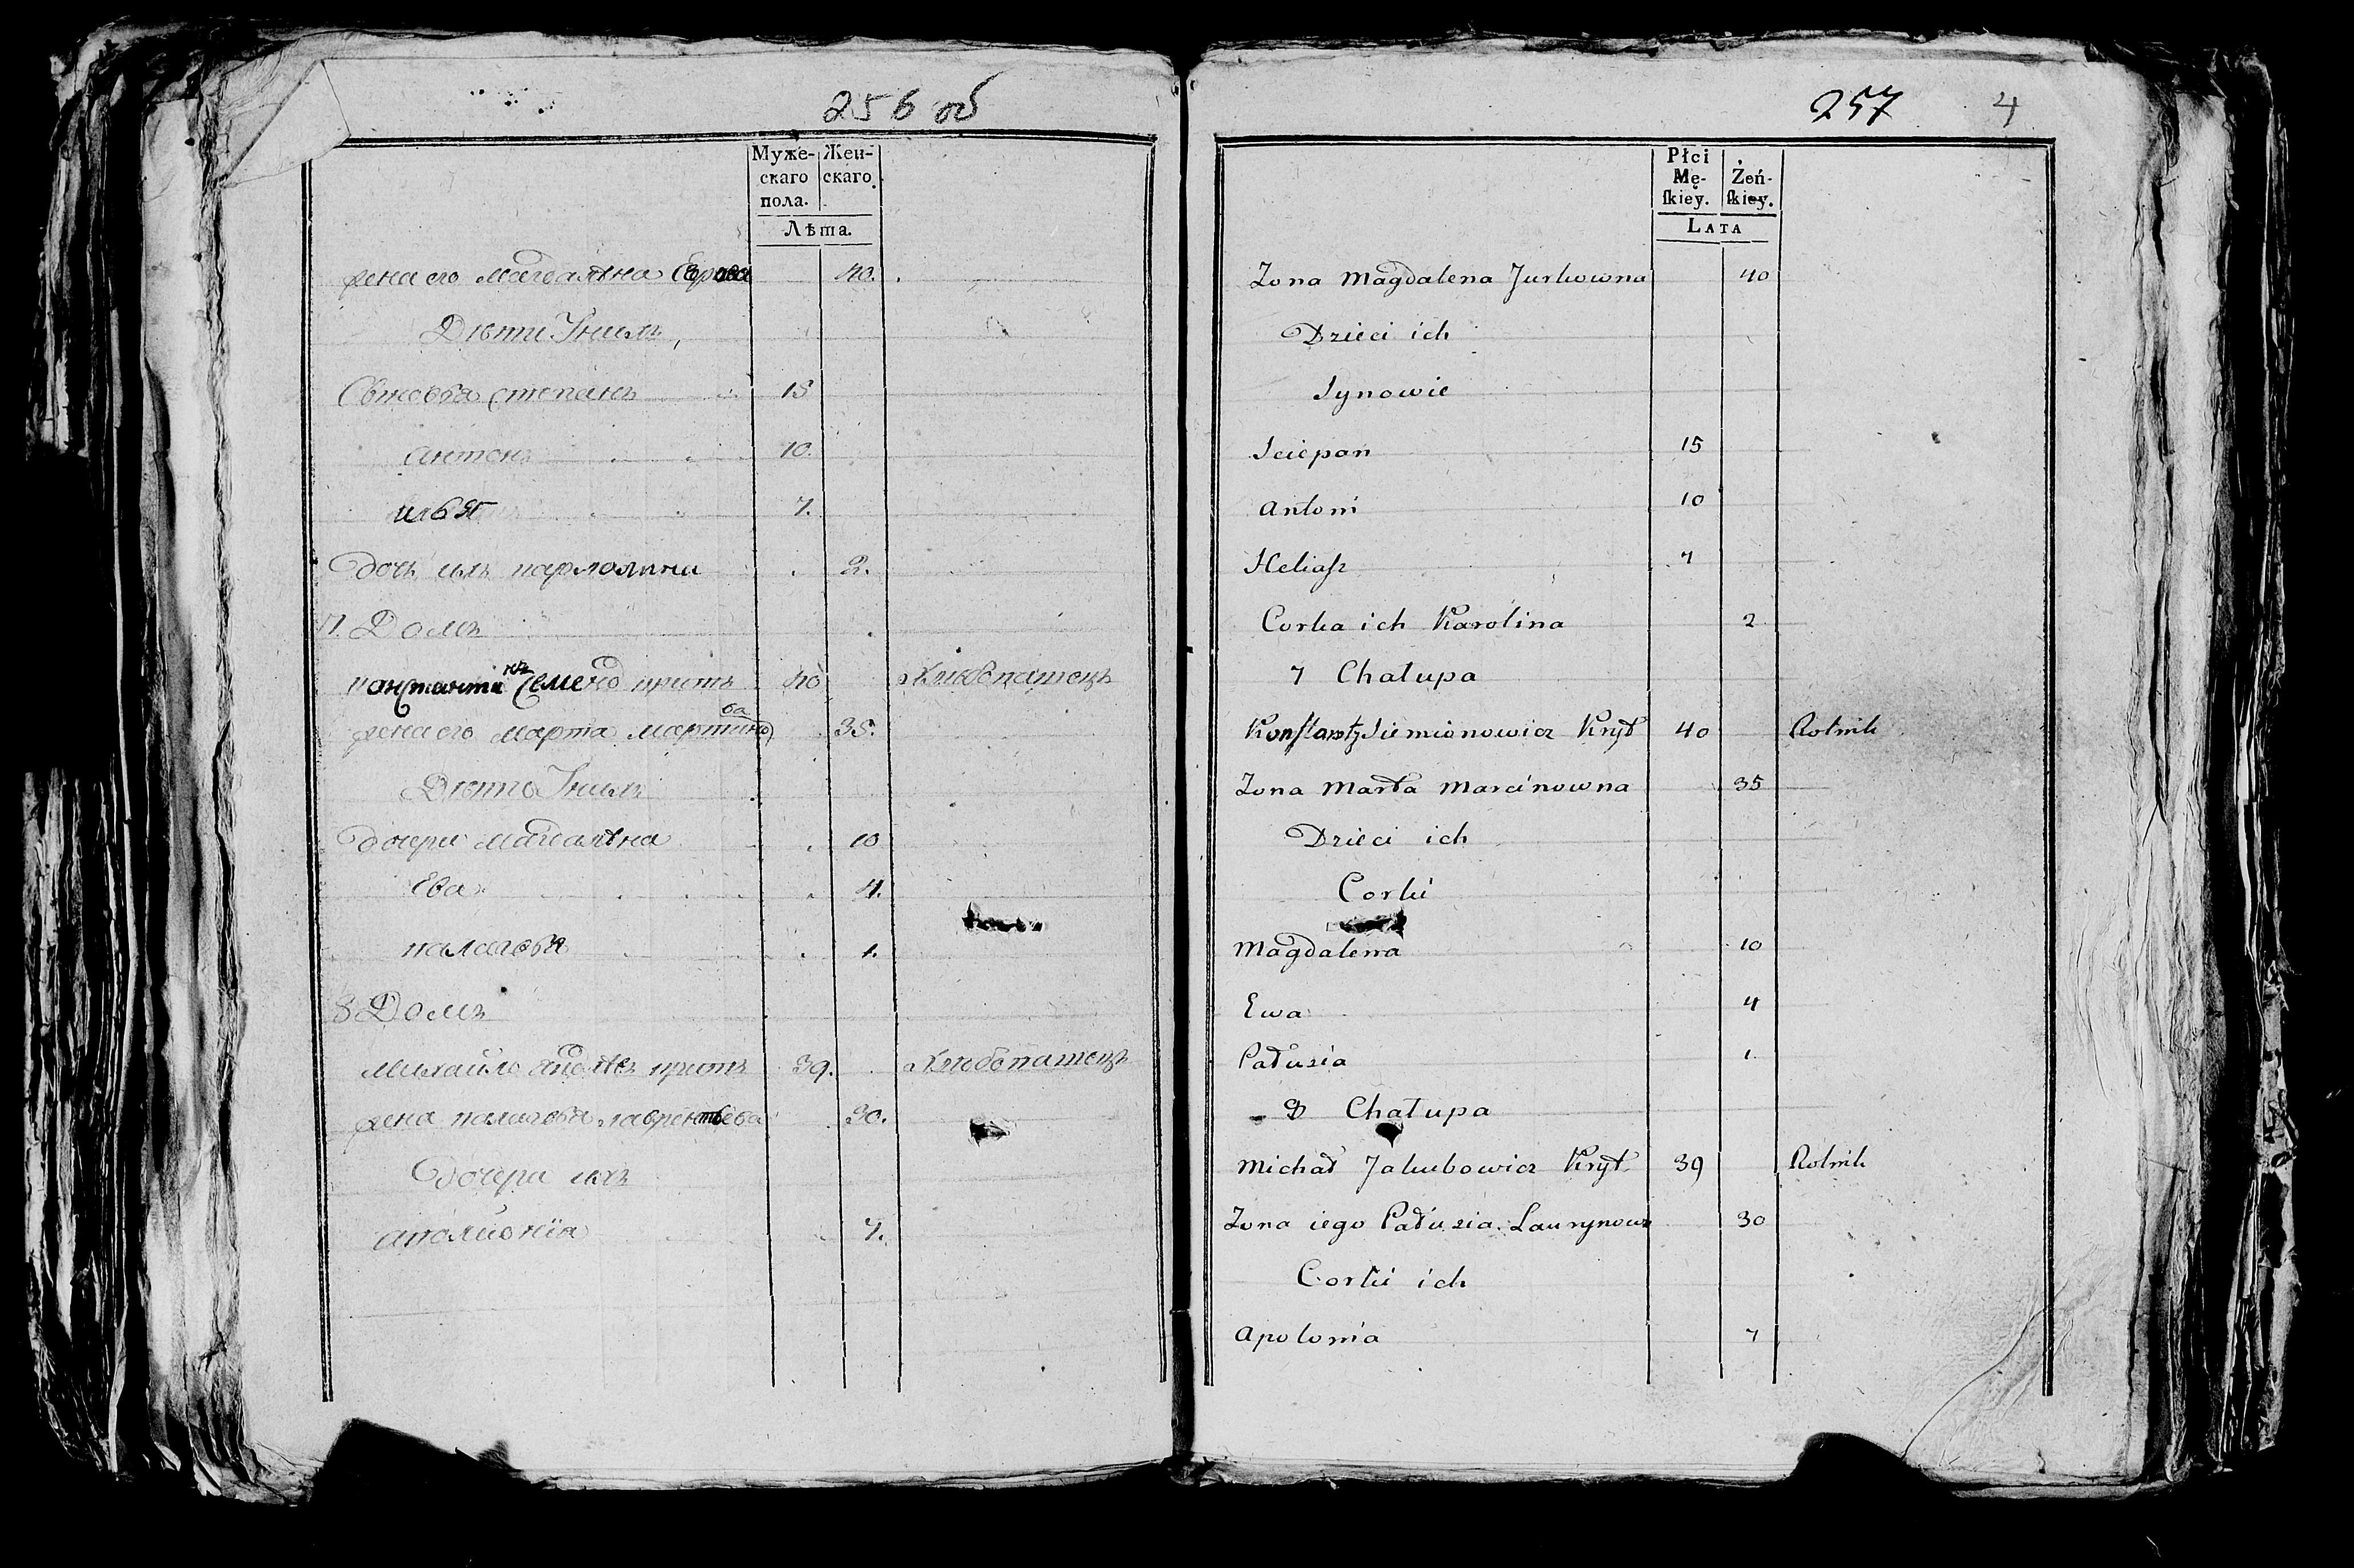 256 об
Муже-
скаго
пола.
Жен-
скаго.
Лѣта.
жена его магдалѣна Ерова 40.
Дѣти Уних
Сыновья степанъ 15
антонъ 10.
илья 7.
дочь ихъ каролина 2.
7. Домъ
констант Семенов критъ 40 Хлѣбопашецъ
жена его марта мартинова 35.
Дѣти Уних
дочери магдалѣна 10
Ева 4.
палагея 1.
8 Домъ
михайло критъ 39. Хлѣбопашецъ
жена палагея лаврентьева 30.
дочери ихъ
аполионія 7.
257 4
Płci
Mę-
ſkiey.
Żeń-
ſkiey.
LATA
Zona Magdalena Jurkowna 40
Dzieci ich
Synowie
Sciepan 15
Antoni 10
Heliaſz 7
Corka ich Karolina 2
7 Chałupa
Konſtanty Siemionowicz Kryt 40 Rolnik
Zona Marta Marcinowna 35
Dzieci ich
Corki
Magdalena 10
Ewa 4
Pałusia 1
8 Chałupa
Michał Jakubowicz Kryt 39 Rolnik
Zona iego Pałusia Laurynowa 30
Corki ich
Apolonia 7